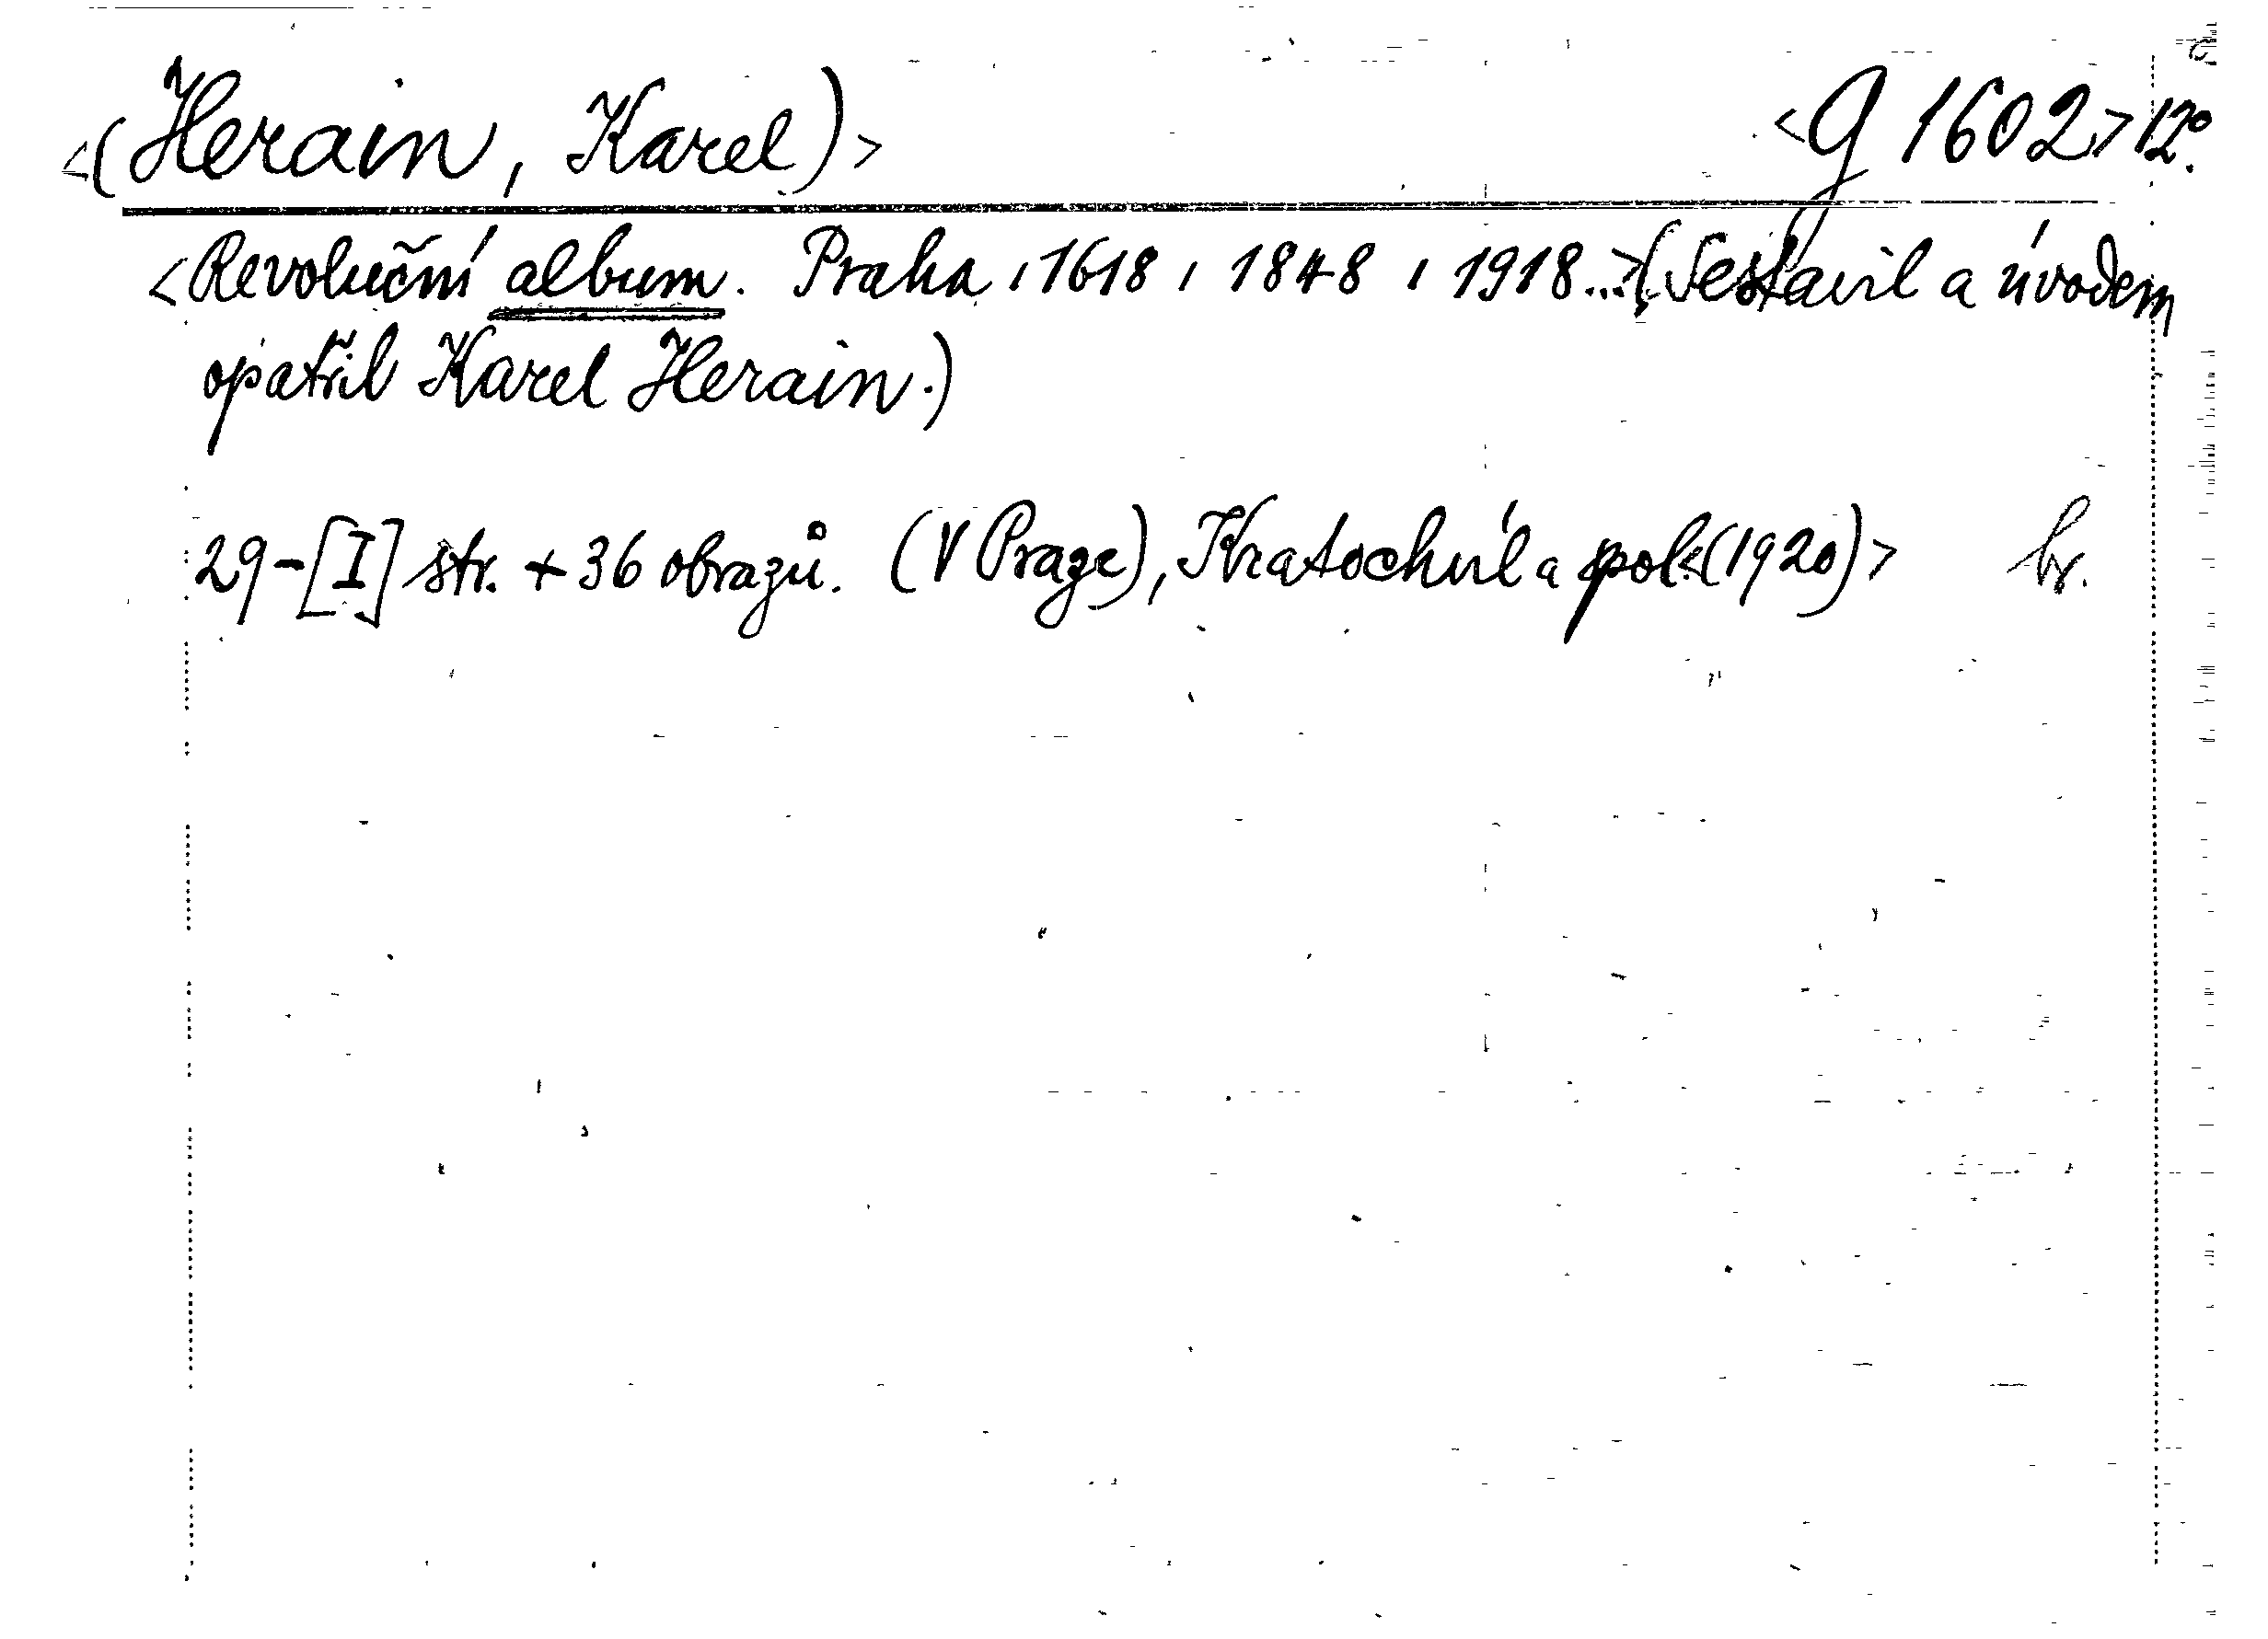 <(Herain, Karel)> <G 1602> 12°.
<Revoluční album. Praha, 1618, 1848, 1918...>(Sestavil a úvodem
opatřil Karel Herain.)
29-[I] str. + 36 obrazů. (V Praze), Kratochvíl a spol.<(1920)> br.